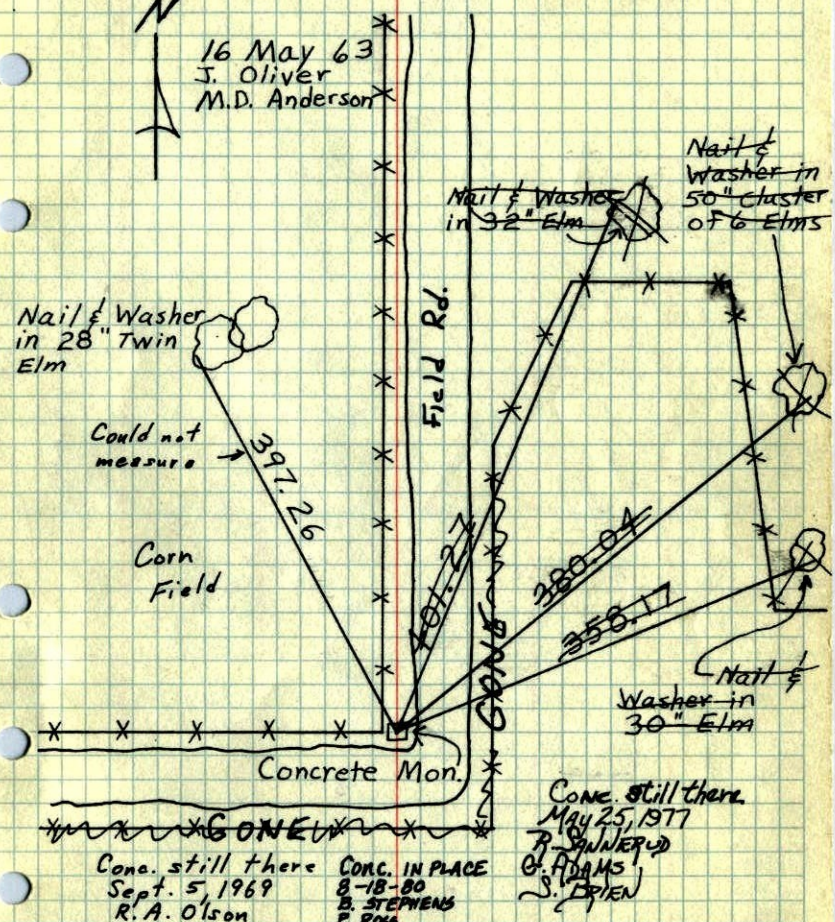 N
16 May 63
J. Oliver
M.D. Anderson
Nail &
Washer in
50" cluster
of 6 Elms
Nail & Washer
in 32" Elm
Nail & Washer
in 28" Twin
Elm
Field Rd.
Could not
measure
397.26
Corn
Field
401.27
380.04
358.17
GONE
Nail &
Washer in
30" Elm
Concrete Mon.
GONE
Conc. still there
May 25, 1977
R. SANNERUD
G. ADAMS
S. BRIEN
Conc. still there
Sept. 5, 1969
R. A. Olson
CONC. IN PLACE
8-18-80
B. STEPHENS